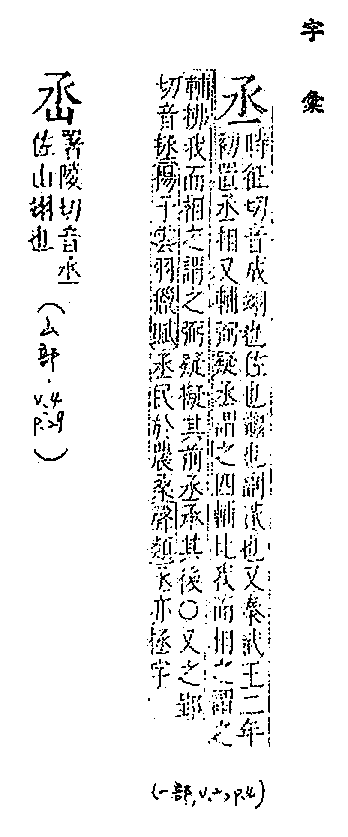 字彙
丞
時征切音成翊也佐也繼也副貳也又秦武王二年
初置丞相又輔弼疑丞謂之四輔比我而相之謂之
輔拂我而相之謂之弼疑擬其前丞承其後〇又之郢
切音拯揚子雲羽獵賦丞民於農桑聲類丞亦拯字
(一部,v.子,p.4)
署陵切音丞
佐山翊也
(山部.
v.4
p.29
)